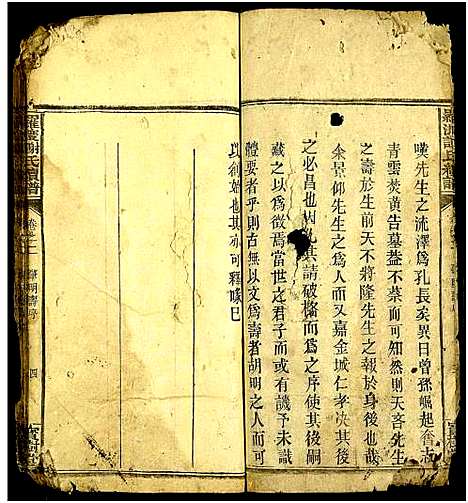 嘆先生之流澤爲孔長矣異日曾孫崛起奮志
青雲焚黃告墓益不禁而可知然則天吝先生
之壽於生前天將隆先生之報於身後也
余景仰先生之爲人而又嘉金城仁孝決其後
之必昌也因其請破格而爲之序使其後嗣
藏之以爲徵焉當世之君子而或譏予未識
體要者乎則古無以文爲壽者胡明之人而可
以創始也其亦可釋喙已
羅渡謝氏續譜
卷之二
壽序
四
寶樹堂
羅渡謝氏續譜